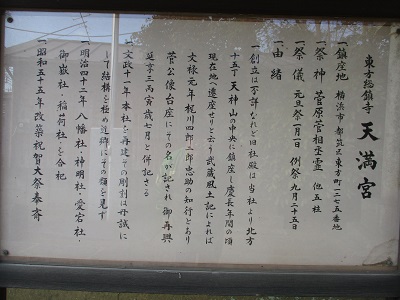 東方総鎮守 天満宮
一鎮座地 横浜市都筑区東方町一二七五番地
一祭神 菅原菅相丞霊 他五柱
一祭儀 元旦祭一月一日 例祭九月二十五日
一由緒
一創立は不詳なれど旧社殿は当社より北方
十五丁天神山の中央に鎮座し慶長年間の頃
現在地へ遷座せりと云う武蔵風土記によれば
文禄元年梶川四郎二郎忠助の知行とあり
菅公像台座にその名が記され御再興
延享三丙寅歳七月と併記さる
一文政十一年本社を再建その彫刻は丹誠に
して結構を極め近郷にその類を見ず
一明治四十二年八幡社・神明社・愛宕社・
御嶽社・稲荷社を合祀
一昭和五十五年改築祝賀大祭奉斎